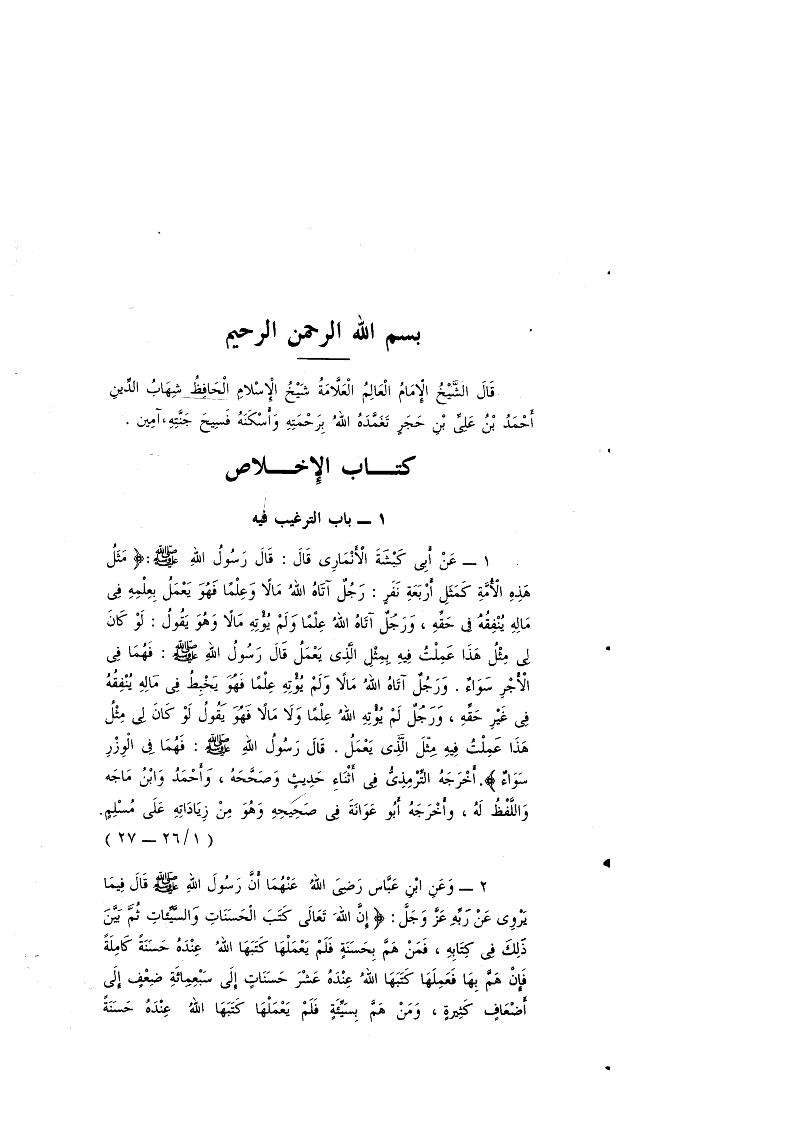 بسم الله الرحمن الرحيم
قَالَ الشَّيْخُ الْإِمَامُ الْعَالِمُ الْعَلَّامَةُ شَيْخُ الْإِسْلَامِ الْحَافِظُ شِهَابُ الدِّينِ
أَحْمَدُ بْنُ عَلِيِّ بْنِ حَجَرٍ تَغَمَّدَهُ اللهُ بِرَحْمَتِهِ وَأَسْكَنَهُ فَسِيحَ جَنَّتِهِ، آمِين .
كتـــاب الإخـــلاص
١ ــ باب الترغيب فيه
١ ــ عَنْ أَبِى كَبْشَةَ الْأَنْمَارِى قَالَ : قَالَ رَسُولُ اللهِ ﷺ : ﴿ مَثَلُ
هَذِهِ الْأُمَّةِ كَمَثَلِ أَرْبَعَةِ نَفَرٍ : رَجُلٌ آتَاهُ اللهُ مَالًا وَعِلْمًا فَهُوَ يَعْمَلُ بِعِلْمِهِ فِى
مَالِهِ يُنْفِقُهُ فِى حَقِّهِ ، وَرَجُلٌ آتَاهُ اللهُ عِلْمًا وَلَمْ يُؤْتِهِ مَالًا وَهُوَ يَقُولُ : لَوْ كَانَ
لِى مِثْلُ هَذَا عَمِلْتُ فِيهِ بِمِثْلِ الَّذِى يَعْمَلُ قَالَ رَسُولُ اللهِ ﷺ : فَهُمَا فِى
الْأَجْرِ سَوَاءٌ . وَرَجُلٌ آتَاهُ اللهُ مَالًا وَلَمْ يُؤْتِهِ عِلْمًا فَهُوَ يَخْبِطُ فِى مَالِهِ يُنْفِقُهُ
فِى غَيْرِ حَقِّهِ ، وَرَجُلٌ لَمْ يُؤْتِهِ اللهُ عِلْمًا وَلَا مَالًا فَهُوَ يَقُولُ لَوْ كَانَ لِى مِثْلُ
هَذَا عَمِلْتُ فِيهِ مِثْلَ الَّذِى يَعْمَلُ . قَالَ رَسُولُ اللهِ ﷺ : فَهُمَا فِى الْوِزْرِ
سَوَاءٌ ﴾. أَخْرَجَهُ التِّرْمِذِىُّ فِى أَثْنَاءِ حَدِيثٍ وَصَحَّحَهُ ، وَأَحْمَدُ وَابْنُ مَاجَه
وَاللَّفْظُ لَهُ ، وَأَخْرَجَهُ أَبُو عَوَانَةَ فِى صَحِيحِهِ وَهُوَ مِنْ زِيَادَاتِهِ عَلَى مُسْلِمٍ.
( ١/ ٢٦ ــ ٢٧ )
٢ ــ وَعَنِ ابْنِ عَبَّاسٍ رَضِىَ اللهُ عَنْهُمَا أَنَّ رَسُولَ اللهِ ﷺ قَالَ فِيمَا
يَرْوِى عَنْ رَبِّهِ عَزَّ وَجَلَّ : ﴿ إِنَّ اللهَ تَعَالَى كَتَبَ الْحَسَنَاتِ وَالسَّيِّئَاتِ ثُمَّ بَيَّنَ
ذَلِكَ فِى كِتَابِهِ ، فَمَنْ هَمَّ بِحَسَنَةٍ فَلَمْ يَعْمَلْهَا كَتَبَهَا اللهُ عِنْدَهُ حَسَنَةً كَامِلَةً
فَإِنْ هَمَّ بِهَا فَعَمِلَهَا كَتَبَهَا اللهُ عِنْدَهُ عَشْرَ حَسَنَاتٍ إِلَى سَبْعِمِائَةِ ضِعْفٍ إِلَى
أَضْعَافٍ كَثِيرَةٍ ، وَمَنْ هَمَّ بِسَيِّئَةٍ فَلَمْ يَعْمَلْهَا كَتَبَهَا اللهُ عِنْدَهُ حَسَنَةً